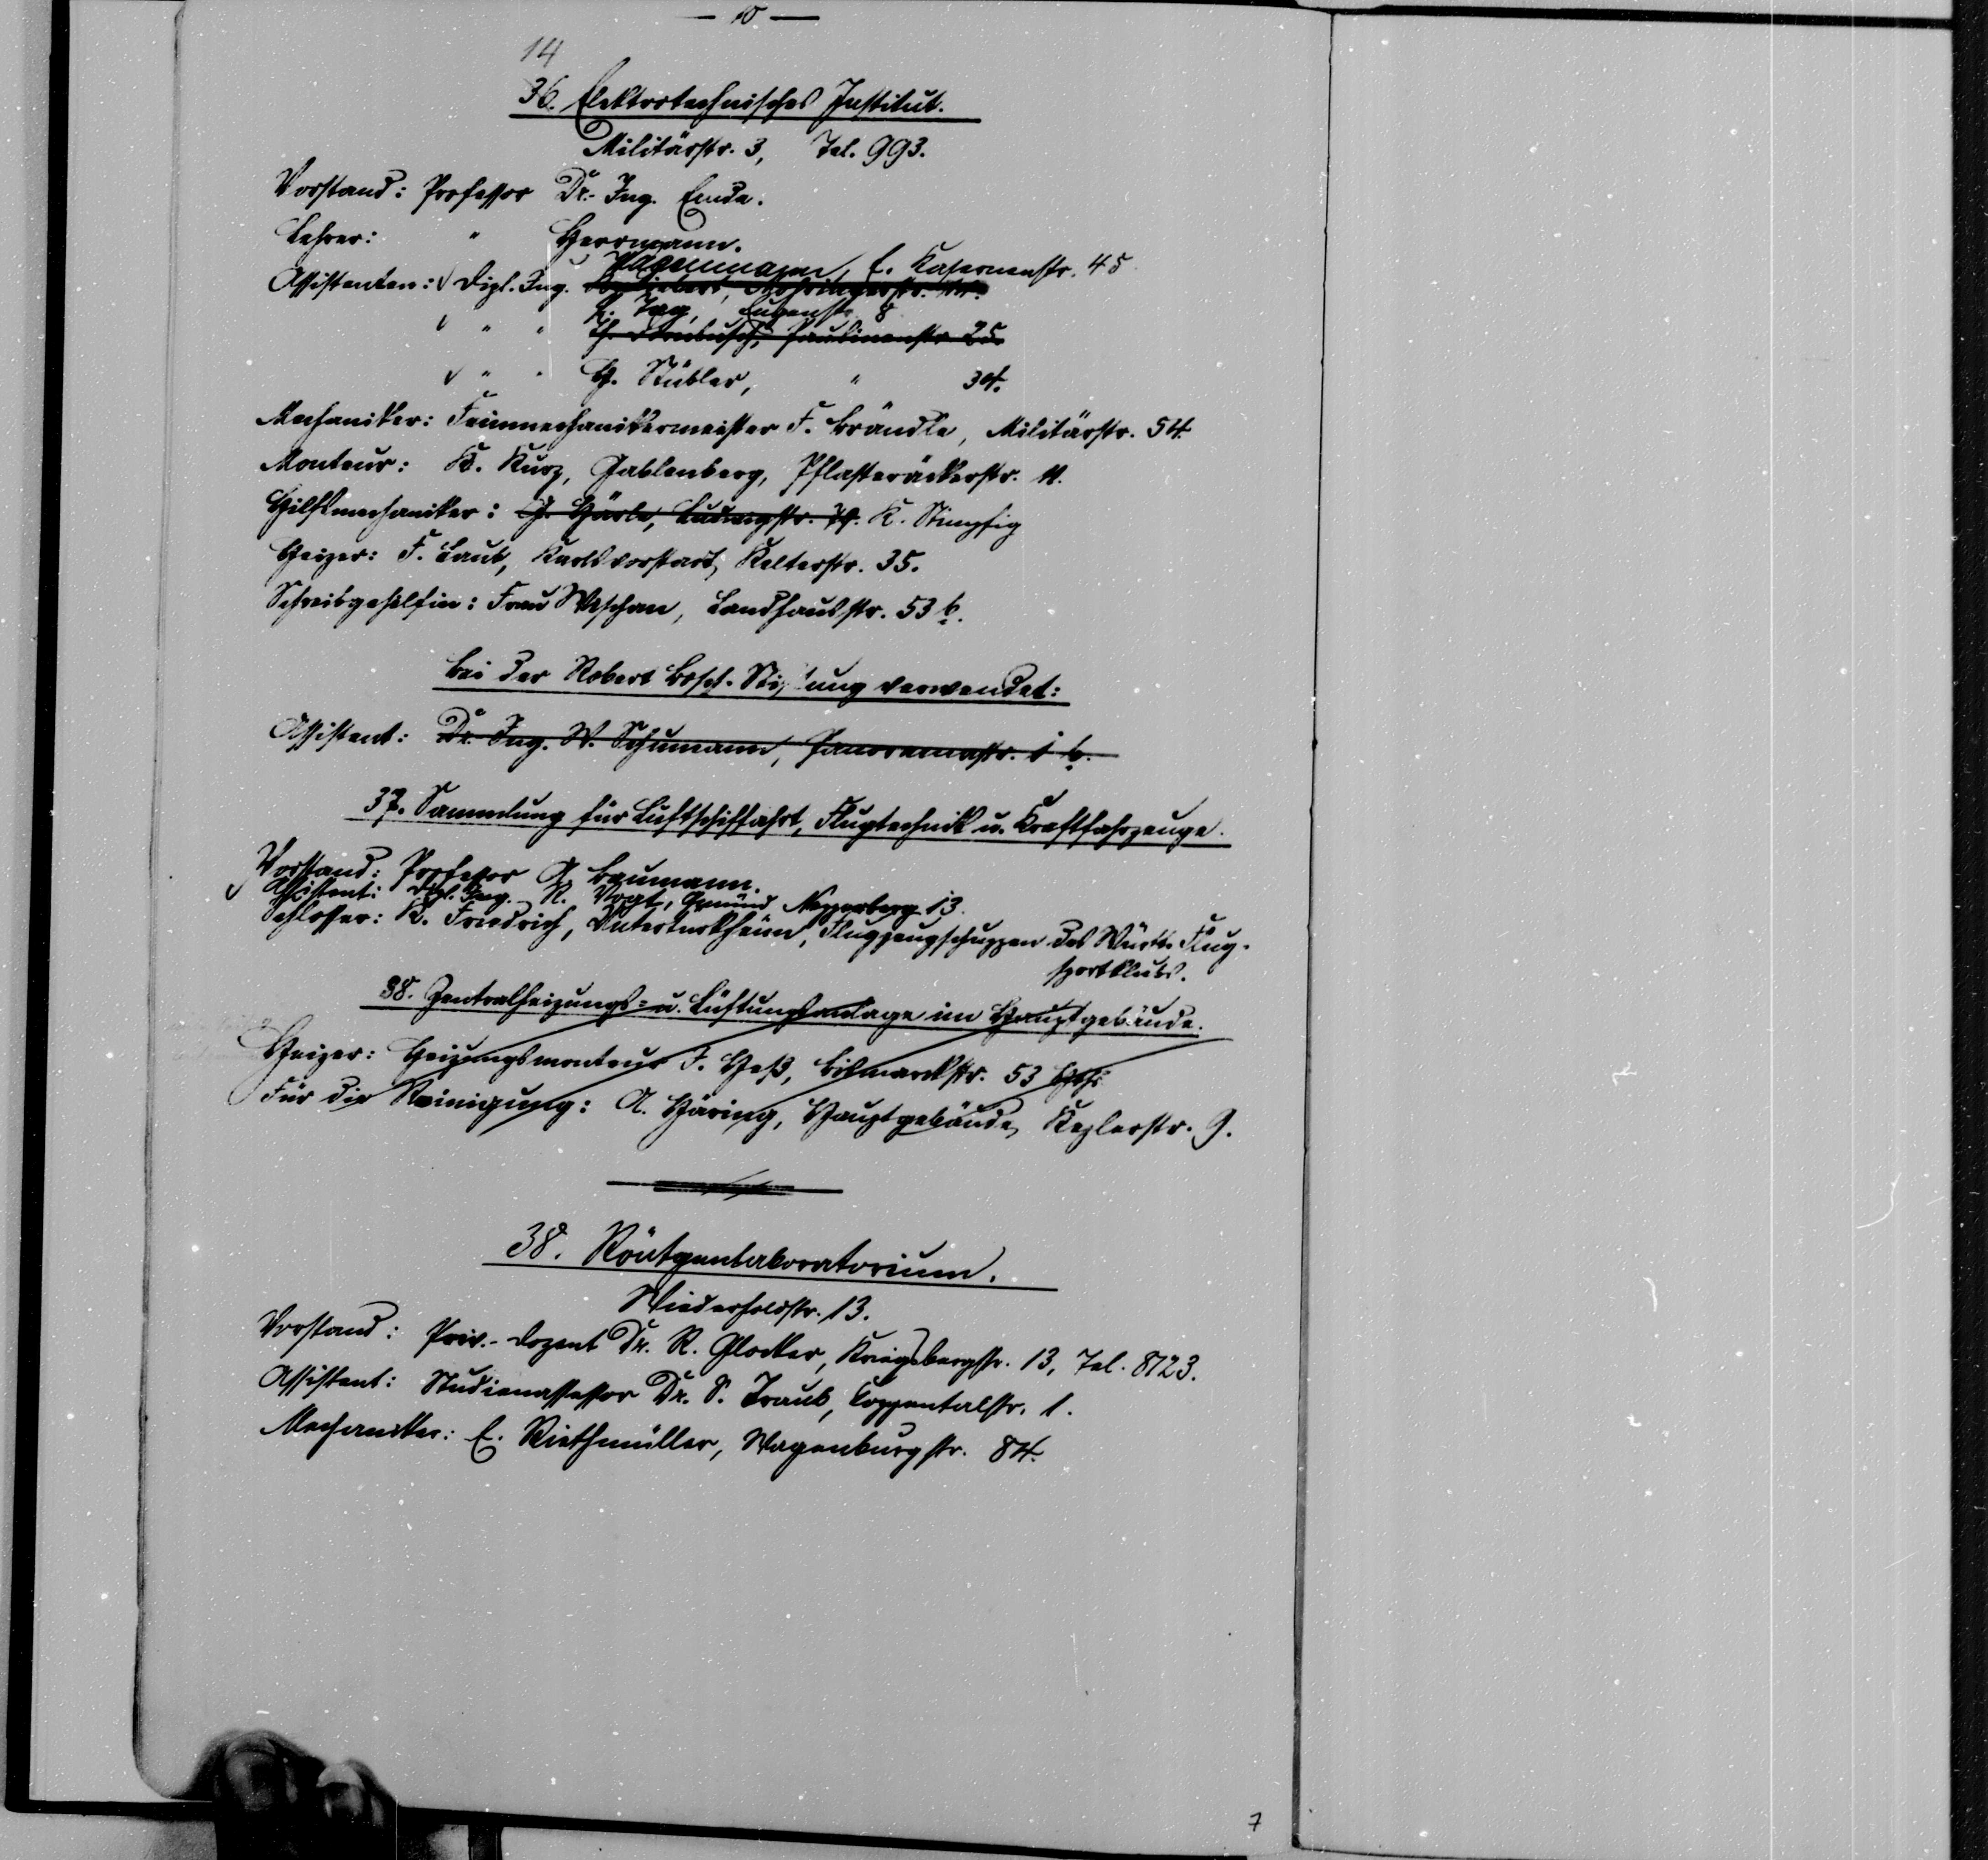 — 10 —
14
36. Elektrotechnisches Institut.
Militärstr. 3, Tel. 993.
Vorstand: Professor Dr.-Ing. Emde.
Lehrer: " Herrmann.
Hagenmayer, E. Kasernenstr. 45
Assistenten: √ Dipl. Ing.
H. Jag, 8
√ " " Th. Dornbusch, Paulinenstr. 25.
√ " " G. Stübler, " 34.
Mechaniker: Feinmechanikermeister F. Brändle, Militärstr. 54.
Monteur: K. Kurz, Gablenberg, Pflasteräckerstr. 11.
Hilfsmechaniker: G. Härle, Ludwigstr. K. Stimpfig
Heizer: F. Laub, Karlsvorstadt, Kelterstr. 35.
Schreibgehilfin: Frau Weschan, Landhausstr. 53 b.
Bei der Robert Bosch-Stiftung verwendet:
Assistent: Dr. Ing. W. Schumann, Panoramastr. 1 b.
37. Sammlung für Luftschiffahrt, Flugtechnik u. Kraftfahrzeuge.
Vorstand: Professor A. Baumann.
√ Assistent: Dipl. Ing. R. Vogt, Gmünd Nepperberg 13.
Schlosser: K. Friedrich, Untertürkheim, Flugzeugschuppen des Württ. Flug-
sportklubs.
38. Zentralheizungs- u. Lüftungsanlage im Hauptgebäude.
Heizer: Heizungsmonteur F. Heß, Bismarckstr. 53 Hths.
Für die Reinigung: A. Häring, Hauptgebäude, Keplerstr. 9.
38. Röntgenlaboratorium.
Wiederholdstr. 13.
Vorstand: Priv.-Dozent Dr. R. Glocker, Kriegsbergstr. 13, Tel. 8123.
Assistent: Studienassessor Dr. S. Traub, Koppentalstr. 1.
Mechaniker: E. Riethmüller, Wagenburgstr. 84.
7